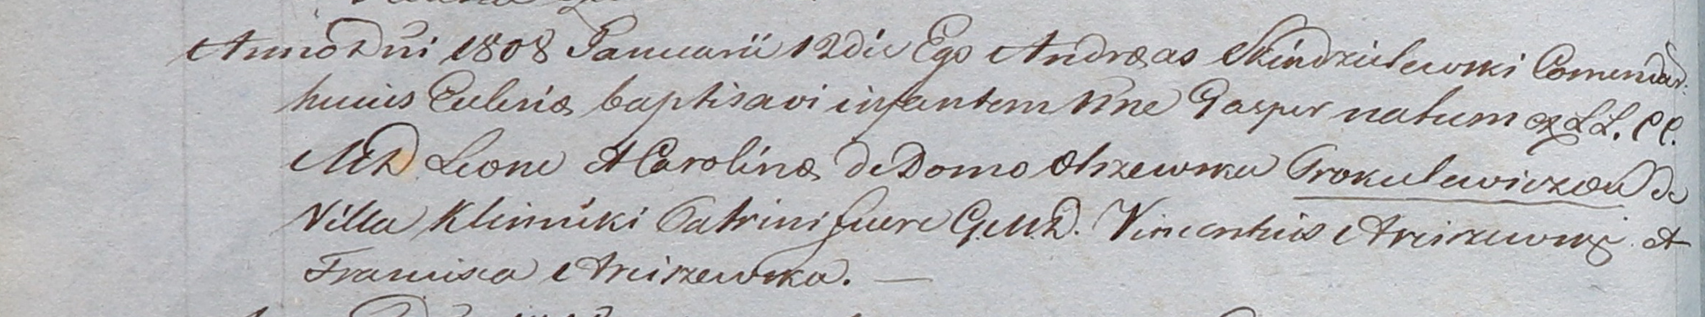 Anno Dni 1808 Januarii 12 die Ego Andræas Skindzielewski Comendar:
huius Eclesiæ baptisavi infantem nne Gasper natum ex L L. C C.
M D Leone et Carolinæ de Domo Olszewska Prokulewiczow de
Villa Klimuki Patrini fuere G. M. D. Vincentius Arciszewski et
Francisca Arciszewska. —